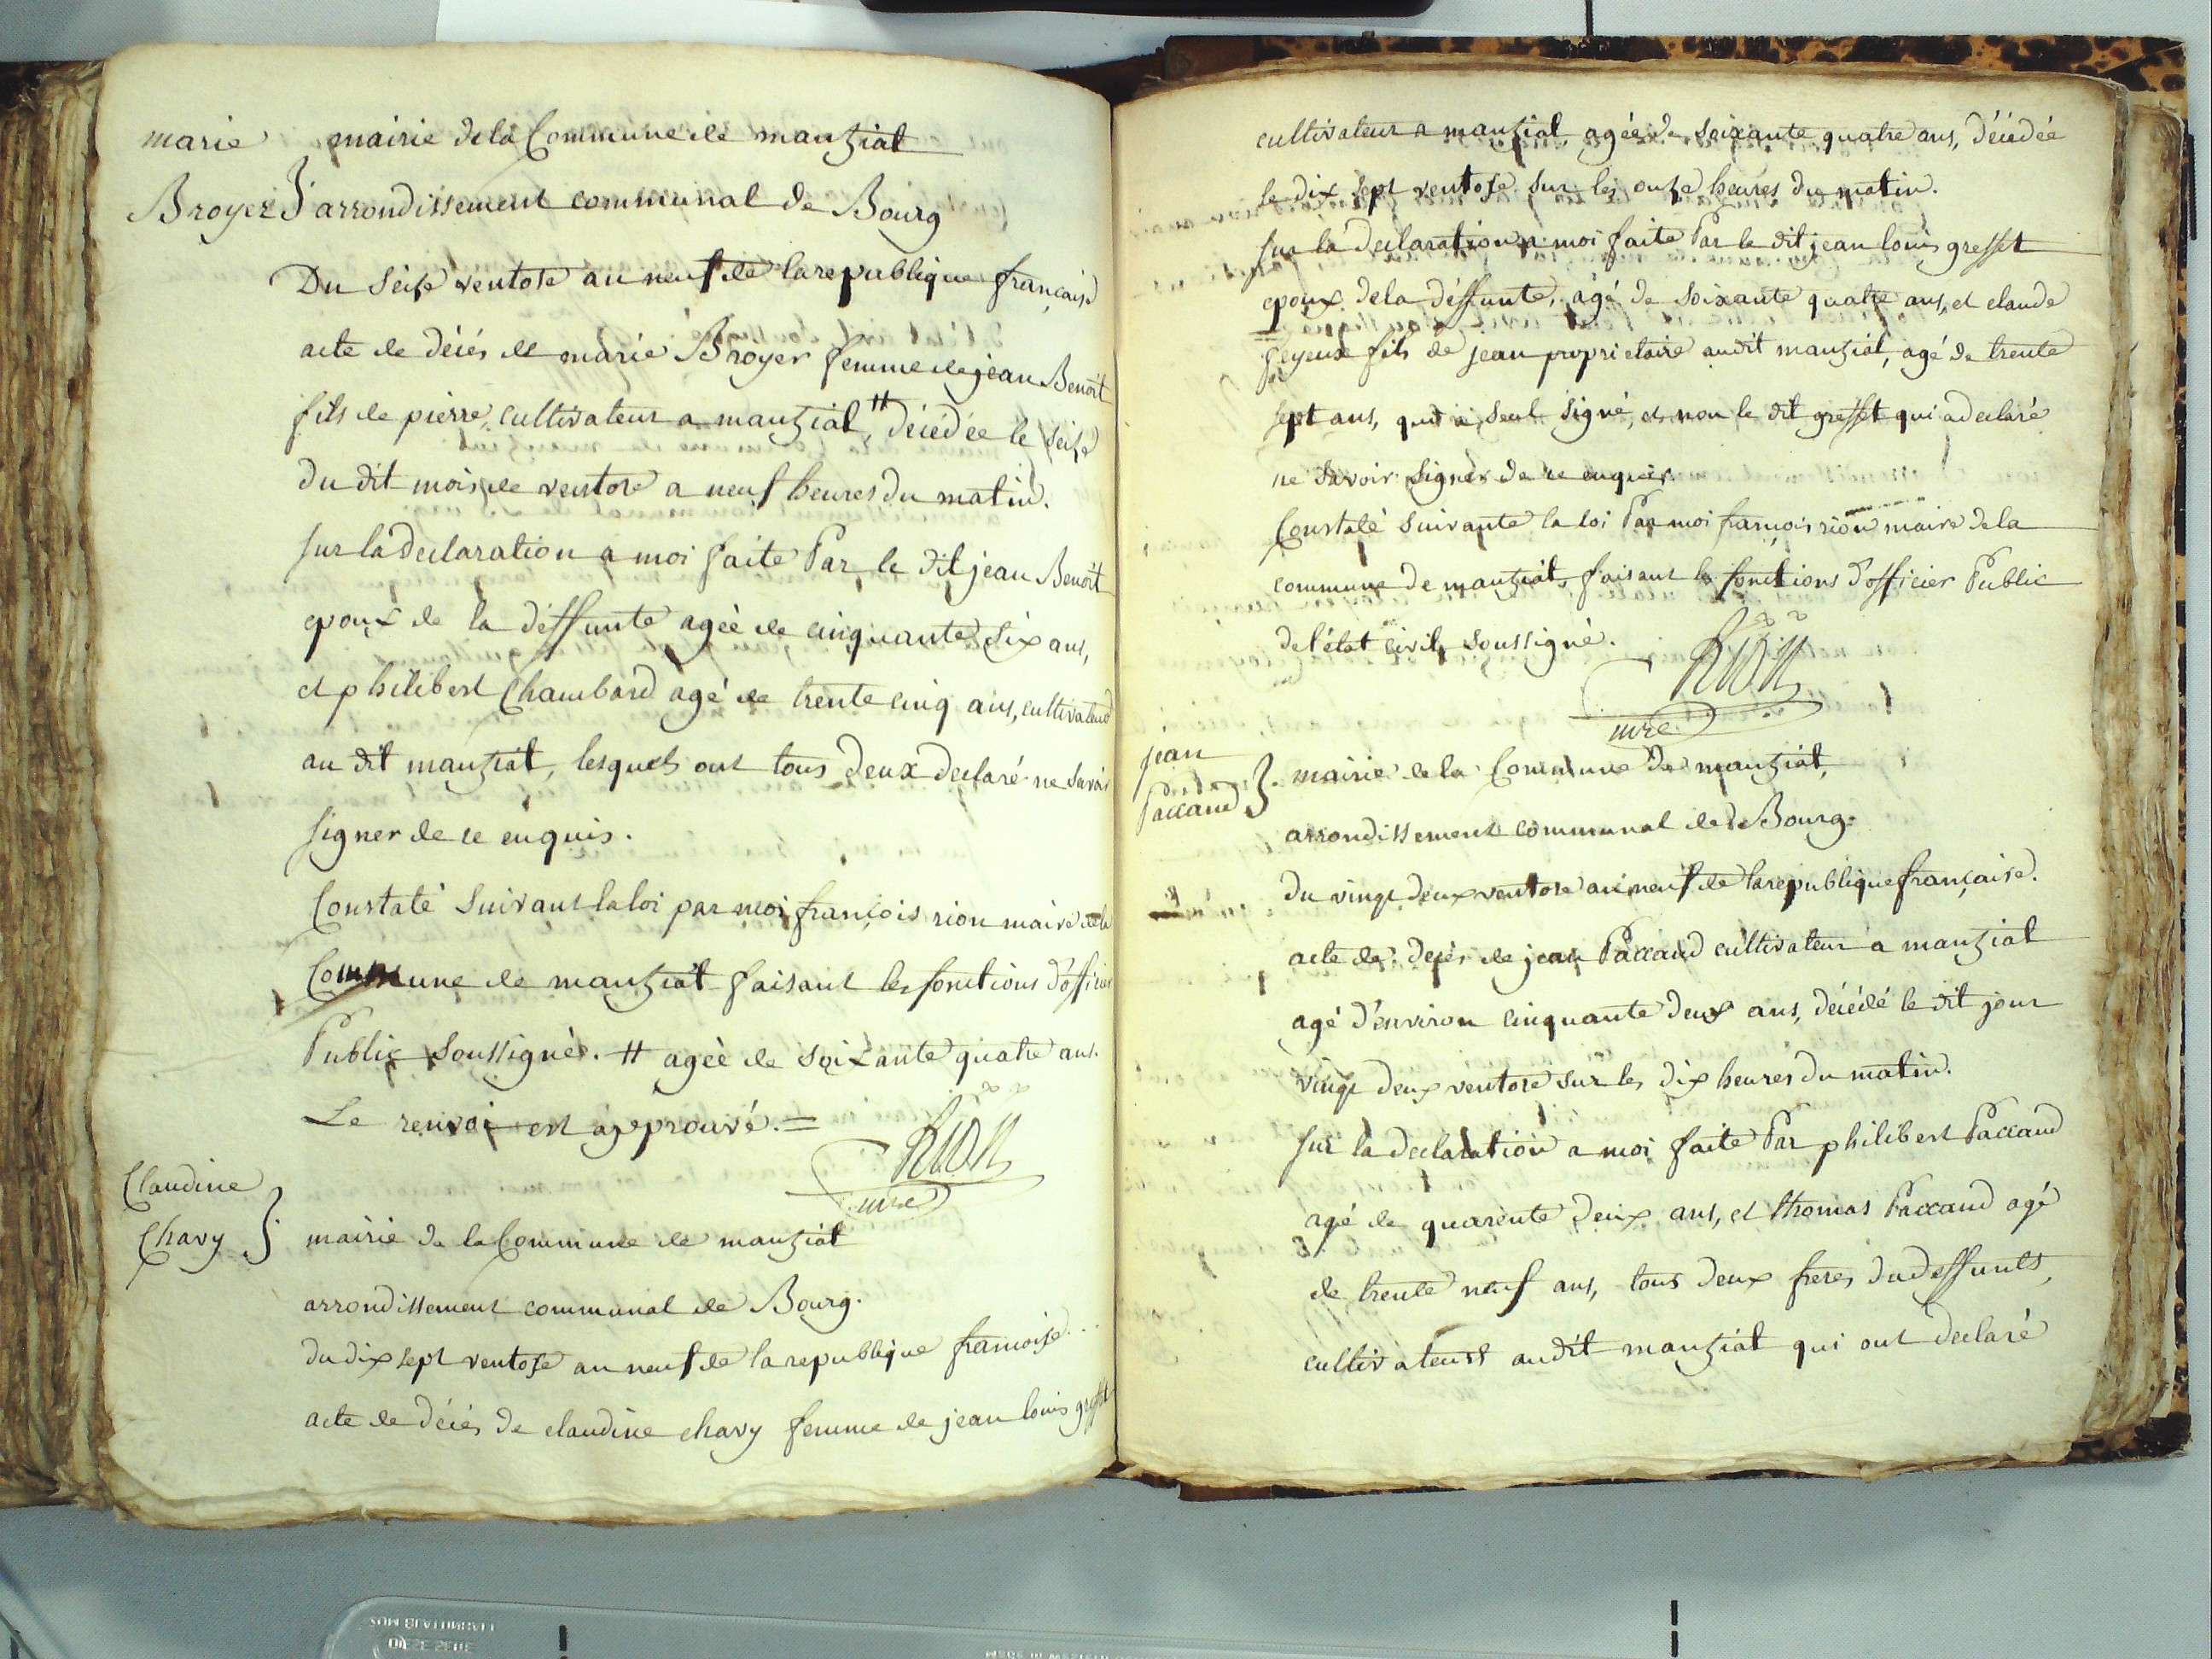 marie
Broyer
mairie de la Commune de manziat
arrondissement communal de Bourg
Du seize ventose an neuf de la republique française
acte de décés de marie Broyer femme de jean Benoît
fils de pierre, cultivateur a manziat, # décédée le seize
du dit mois de ventose a neuf heures du matin.
sur la declaration a moi faite Par le dit jean Benoît
epoux de la déffunte agée de cinquante six ans,
et philibert Chambard agé de trente cinq ans, cultivateurs
au dit manziat, lesquels ont tous deux declaré ne savoir
signer de ce enquis.
Constaté suivant la loi par moi françois rion maire de la
Commune de manziat faisant les fonctions d'officier
Public soussigné. # agée de soixante quatre ans.
Le renvoi est approuvé. =
Rion
mre
Claudine
Chavy
mairie de la Commune de manziat
arrondissement communal de Bourg.
du dix sept ventose an neuf de la republique françoise
acte de décés de claudine chavy femme de jean louis gresset
cultivateur a manziat agée de soixante quatre ans, décédée
le dix sept ventose sur les onze heures du matin.
sur la declaration a moi faite Par le dit jean louis gresset
epoux de la déffunte, agé de soixante quatre ans, et claude
feyeux fils de jean proprietaire audit manziat, agé de trente
sept ans, qui a seul signé, et non le dit gresset qui a declaré
ne savoir signer de ce enquis.
Constaté suivante la loi Par moi françois rion maire de la
commune de manziat, faisant les fonctions d'officier Public
de l'état civil soussigné.
Rion
mre
jean
Paccaud
mairie de la Commune de manziat,
arrondissement communal de Bourg.
du vingt deux ventose an neuf de la republique française.
acte de decés de jean Paccaud cultivateur a manziat
agé d'environ cinquante deux ans, décédé le dit jour
vingt deux ventose sur les dix heures du matin.
sur la declaration a moi faite Par philibert Paccaud
agé de quarente deux ans, et thomas Paccaud agé
de trente neuf ans, tous deux freres du deffunts,
cultivateurs audit manziat qui ont declaré